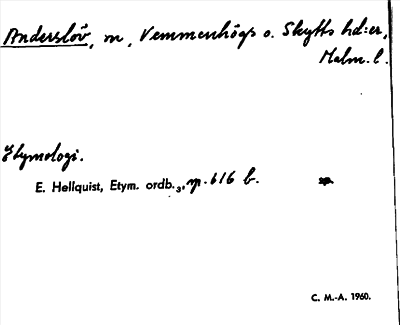 Anderslöv, m, Vemmenhögs o. Skytts hd:er,
Malm. l.
Etymologi.
E. Hellquist, Etym. ordb.3, p. 616 b.
C. M.-A. 1960.